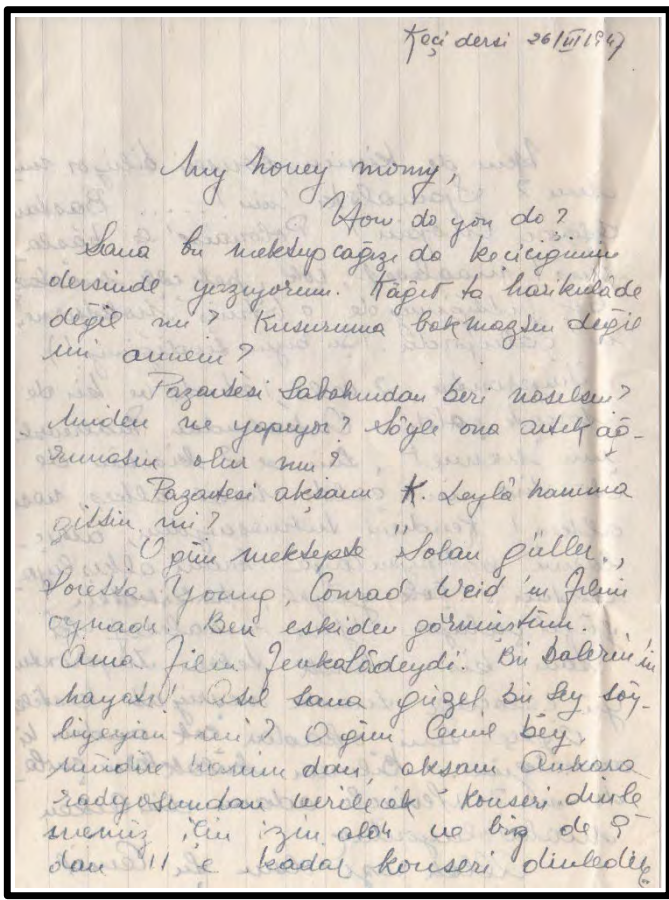 Keçi dersi 26/III/1947
My honey momy,
How do you do?
Sana bu mektupcağızı da keciciğimin
dersinde yazıyorum. Kâğıt ta harikulâde
değil mi? Kusuruma bakmazsın değil
mi annem?
Pazartesi sabahından beri nasılsın?
Miden ne yapıyor? Söyle ona artık ağ-
rımasın olur mu?
Pazartesi akşamı K. Leylâ hanıma
gittin mi?
O gün mektepte "Solan güller",
Loretta Young, Conrad Weid'in filmi
oynadı. Ben eskiden görmüştüm.
Ama film fevkalâdeydi. Bir balerin'in
hayatı! Asıl sana güzel bir şey söy-
liyeyim mi? O gün Cemil bey,
müdire hanım'dan, akşam Ankara
radyosundan verilecek konseri dinle
memiz için izin aldı ve biz de 9
dan 11'e kadar konseri dinledik